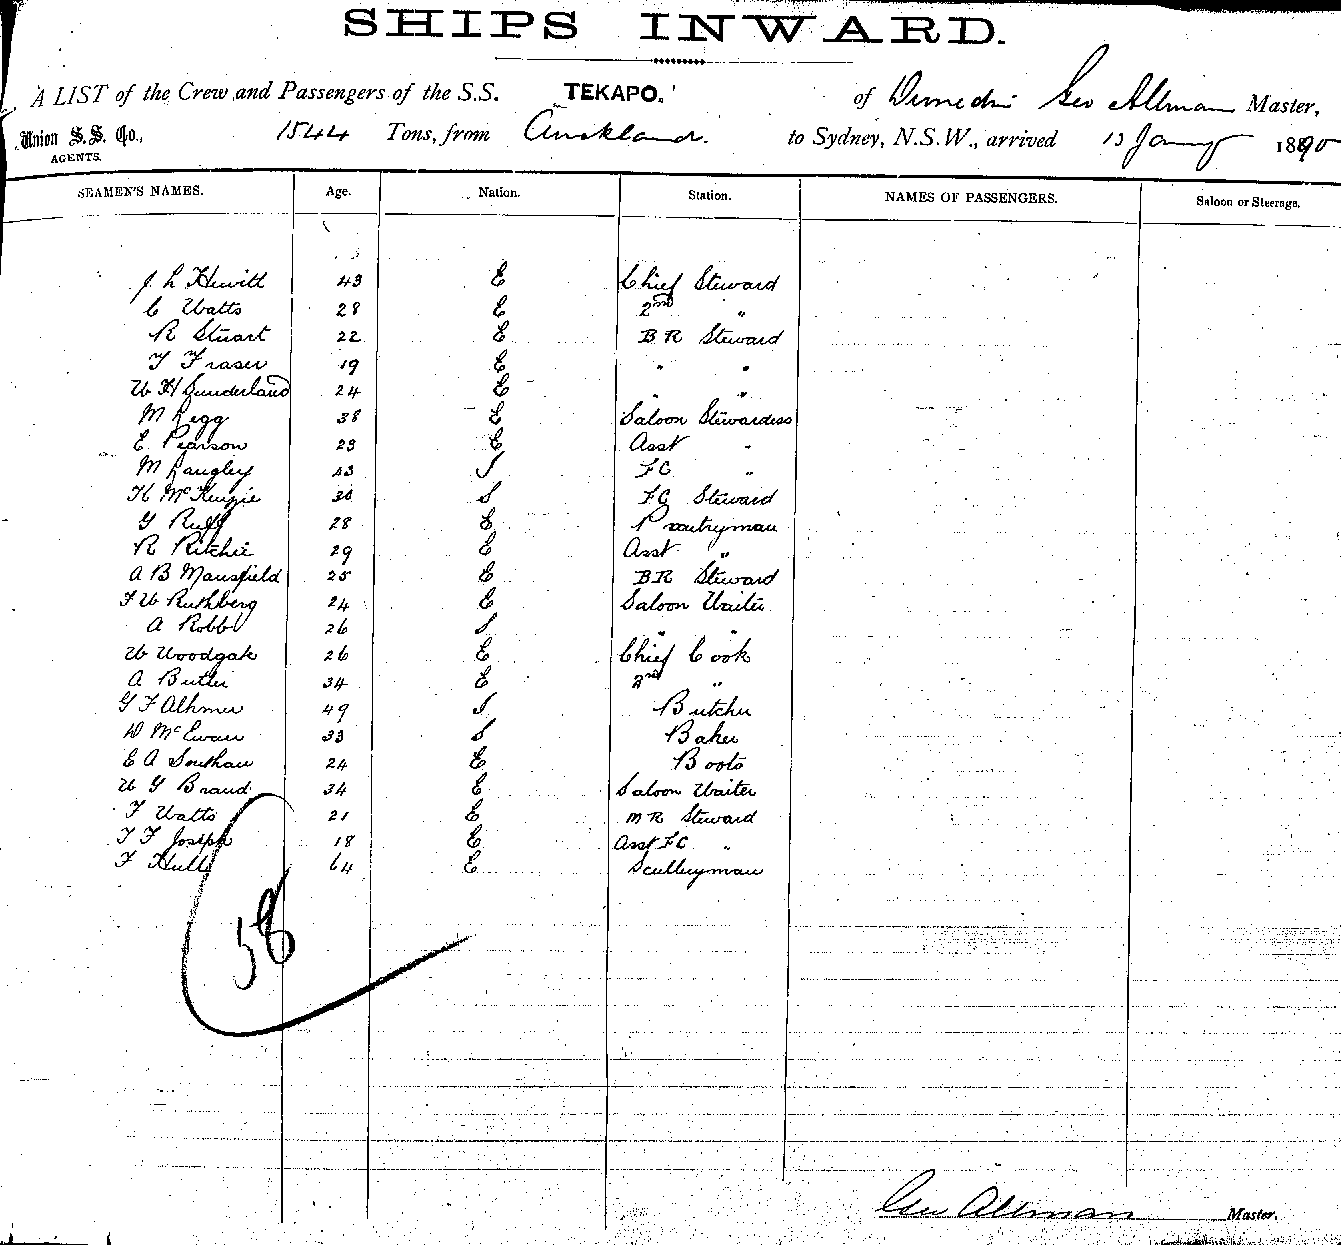 SHIPS INWARD.
A LIST of the Crew and Passengers of the S.S. TEKAPO. of Dunedin Geo Allman Master,
Union S.S. Co., 1544 Tons, from Auckland. to Sydney, N.S.W., arrived 13 Jany 1890
AGENTS.
SEAMEN'S NAMES. Age. Nation. Station. NAMES OF PASSENGERS. Saloon or Steerage.
J L Hewitt 43 E Chief Steward
C Watts 28 E 2nd "
R Stuart 22 E B R Steward
T Fraser 19 E " "
W H Sunderland 24 E " "
M Legg 38 E Saloon Stewardess
E Pearson 23 E Asst "
M Langley S FC "
H McKenzie 30 S FC Steward
G Ruff 28 E Pantryman
R Ritchie 29 E Asst "
A B Mansfield 25 E BR Steward
F W Ruthberg 24 E Saloon Waiter
A Robb 26 S " "
W Woodgate 26 E Chief Cook
A Butler 34 E 2nd "
G F 49 S Butcher
D McEwan 33 S Baker
E A Southan 24 E Boots
W G Braud 34 E Saloon Waiter
F Watts 21 E M R Steward
T F Joseph 18 E Asst FC "
F Hull 64 E Sculleryman
58
Geo Allman Master.